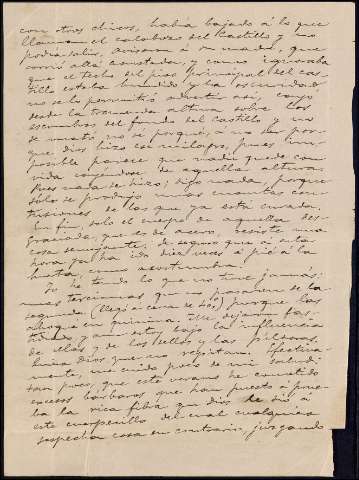 con otros chicos, había bajado á lo que
llaman el calabozo del Castillo y no
podía salir, avisaron á su madre, que
corrió allá asustada, y como ignoraba
que el techo del piso principal del cas-
tillo estaba hundido y la oscuridad
no se lo permitió advertir así, cayó
desde la tremenda altura sobre los
escombros del fondo del Castillo y no
se mató, no sé porqué, á no ser por-
que Dios hizo ese milagro, pues im-
posible parece que nadie quede con
vida cayéndose de aquella altura.
Pues nada se hizo; digo nada, porque
sólo se produjo unas cuantas con-
tusiones de las que ya está curada.
En fin, solo el cuerpo de aquella des-
graciada, que es de acero, resiste una
cosa semejante; de seguro que á esta
hora ya ha ido diez veces á pié á la
huerta, como acostumbra.
Yo he tenido lo que no tuve jamás:
unas tercianas que no pasaron de la
segunda (llegué á cerca de 40°) porque las
ahogué en quinina. Me dejaron fas-
tidiado, aun estoy bajo la influencia
de ellas y de los sellos y las píldoras
hacía días que no repitan. Efectiva-
mente, me cuido poco de mi salud;
tan poco, que este verano he cometido
excesos bárbaros que han puesto á prue-
ba la rica fibra que Dios le dió á
este cuerpecillo del cual cualquiera
sospecha cosa en contrario, juzgando